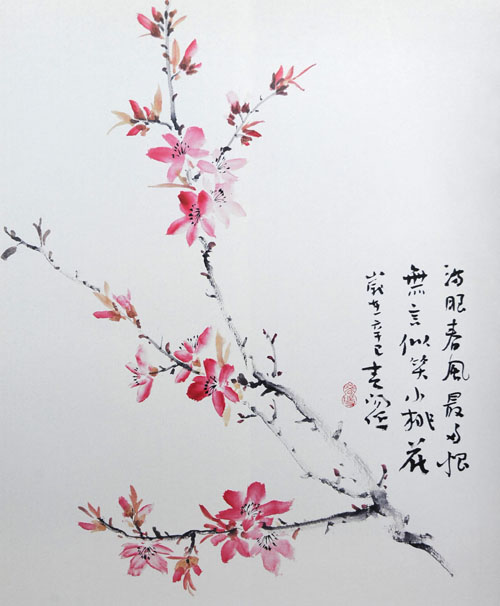 滿眼春風最恨
無言似笑小桃花
歲在辛巳